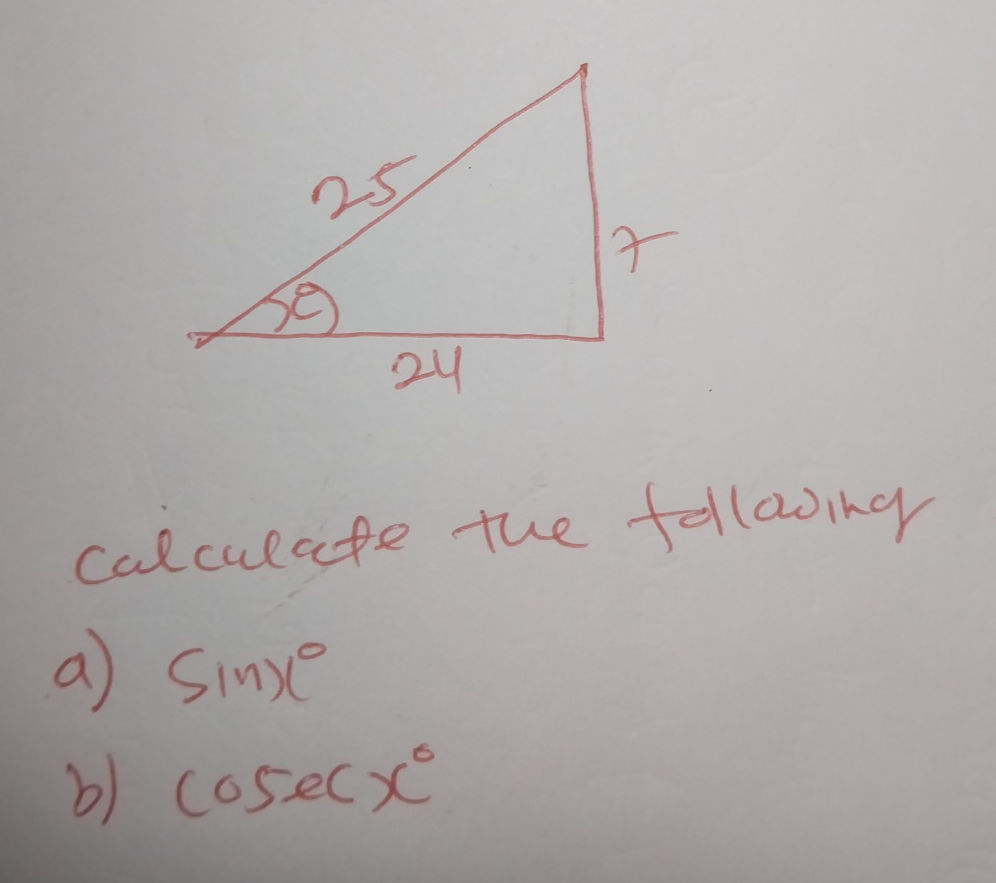 25
7
x°
24
calculate the following
a) Sinx°
b) cosecx°